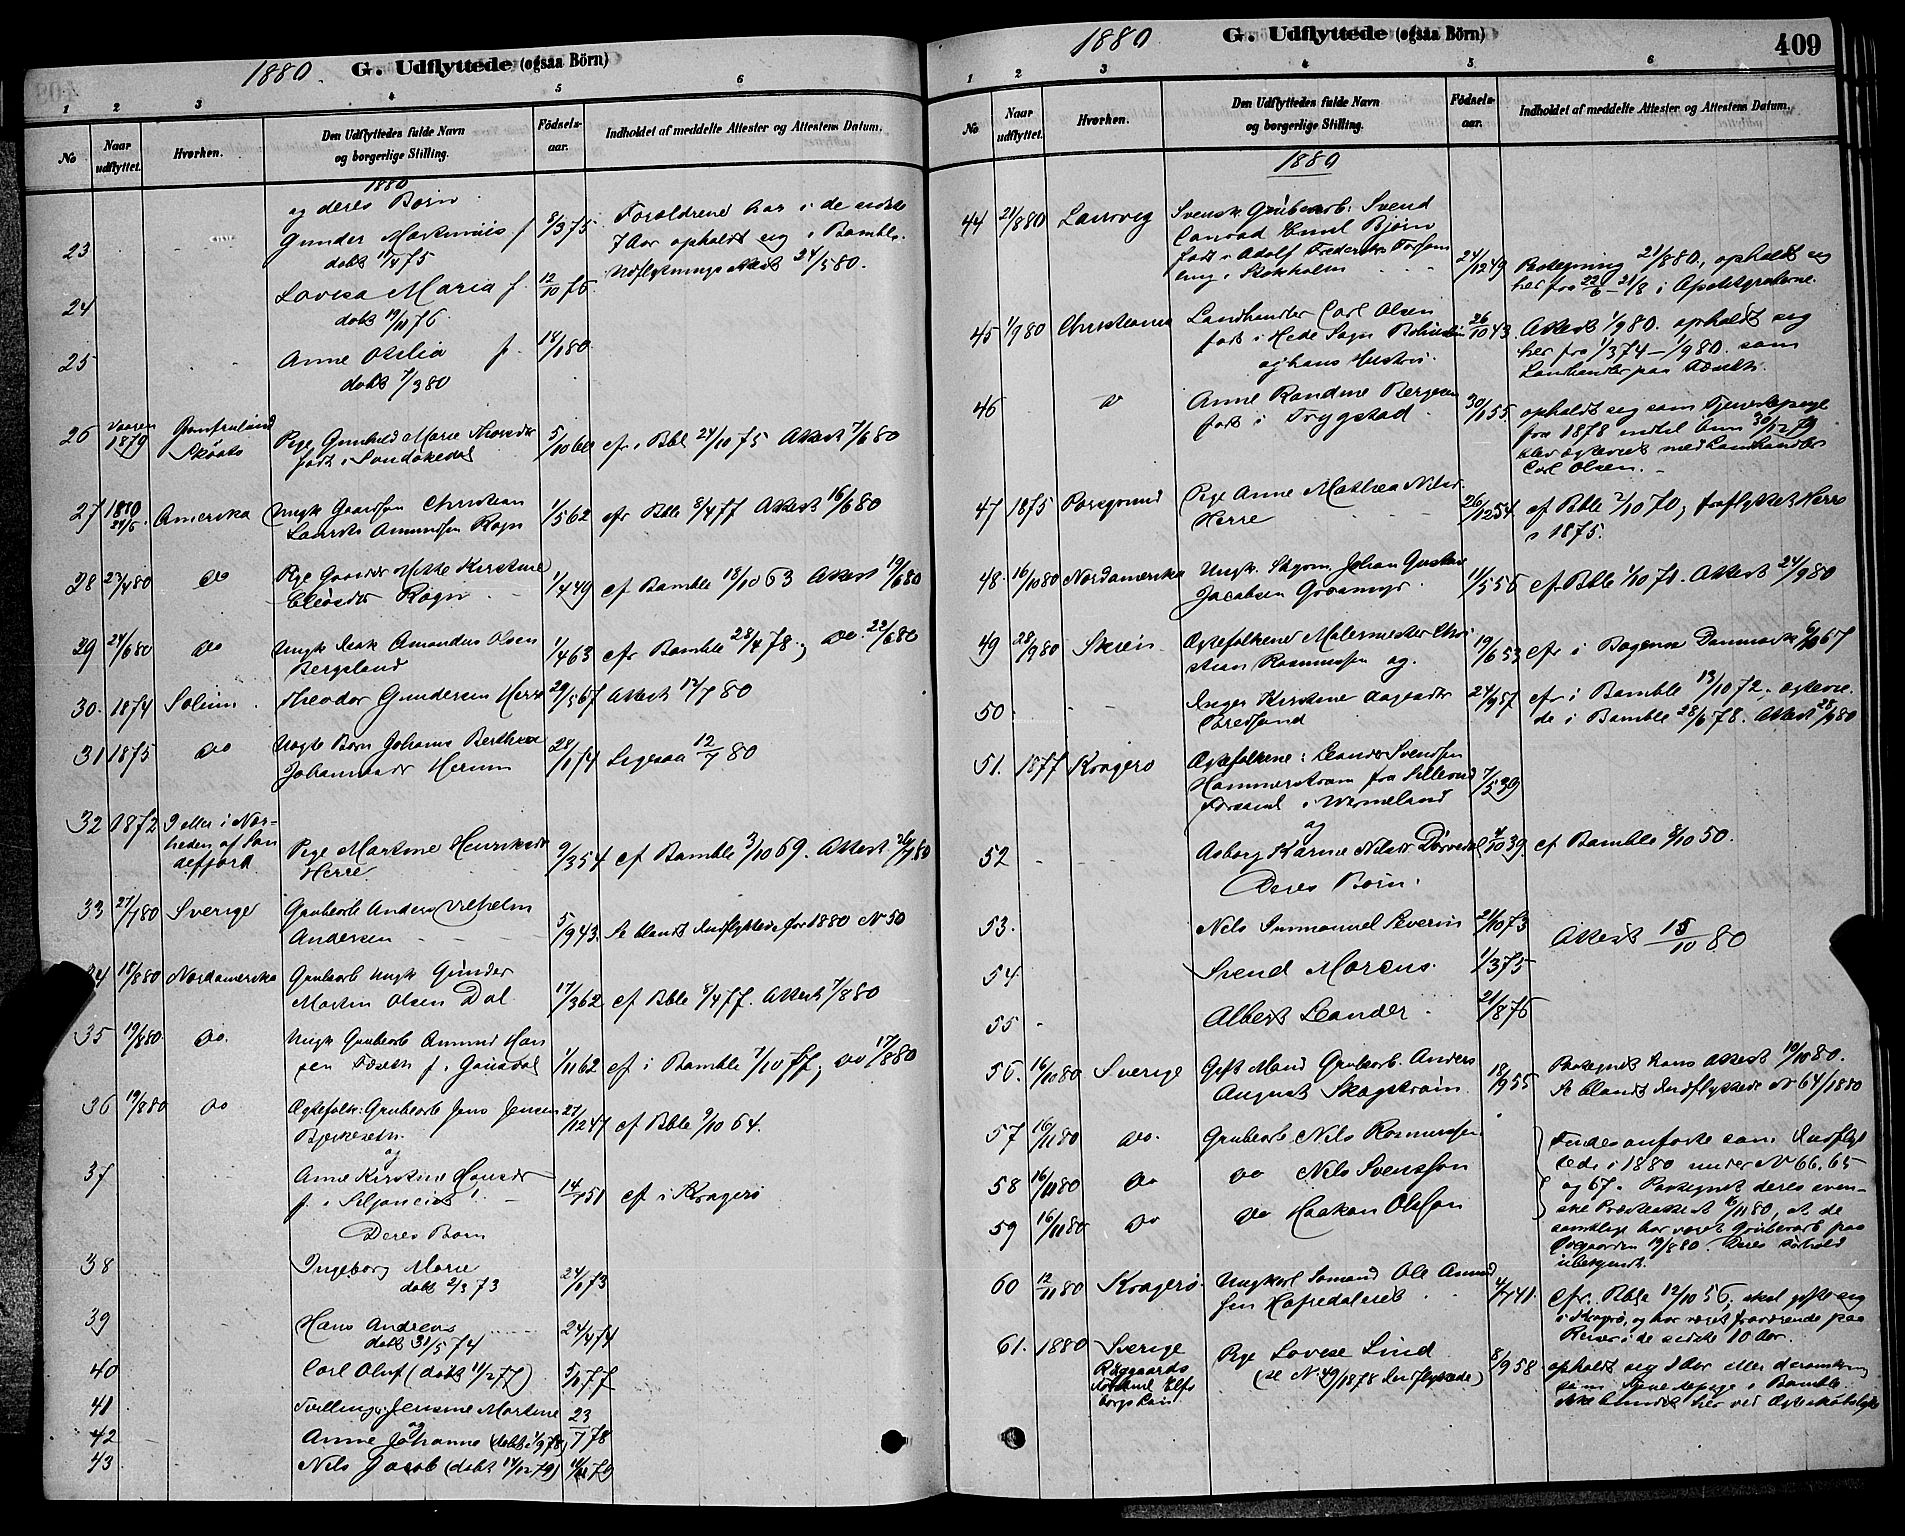 1880. G. Udflyttede (ogsaa Börn)
1 2 3 4 5 6
No Naar udflyttet. Hvorhen. Den Udflyttedes fulde Navn og borgerlige Stilling. Födsels-aar. Indholdet af meddelte Attester og Attestens Datum.
1880
og deres Børn
23 Gunder Markinius f 8/3 75 Forældrene har i de sidste
dobt 11/4 75 7 Aar opholdt sig i Bamble.
Udflytningsattest 24/5 80.
24 Lovisa Maria f. 12/10 76
dobt 19/11 76
25 Anne Otilia f. 18/1 80
dobt 7/3 80
26 Vaaren 1879
Skåtø Pige Gunhild Marie
født i Sandøkedal 5/10 60 cf. i Bble 24/10 75 Attest 7/6 80
27 1880 24/5. Amerika Ungk Gaardsøn Christian
Laurits Amundsen Rogn 1/5 62 cfr Bble 8/4 77 Attest 16/6 80
28 27/4 80 do Pige Gaardm Mette Kirstine
Rogn 1/4 49 cf Bamble 18/10 63 Attest 19/6 80
29 24/6 80 do Ungk Isak Amandus Olsen
Bergsland 1/4 63 cfr Bamble 28/4 78, do. 22/6 80
30. 1874 Solum. Theodor Gundersen Herre 29/5 67 Attest 12/7 80
31 1875 do Uægte Barn Johanne Berthea
Johannesdr Herum 28/1 74 Ligesaa 12/7 80
32 1872 I eller i Nær-
heden af San
defjord Pige Martine Henriksdr
Herre 9/3 54 cf Bamble 3/10 69. Attest 80
33 27/7 80 Sverige Grubearb Anders Vilhelm
Andersen 5/9 43. Se blandt Indflyttede for 1880 No 50
34 18/8 80 Nordamerika Grubearb Ungk Gunder
Martin Olsen Dal 17/3 62 cf Bble 8/4 77. Attest 7/8 80
35 19/8 80 do. Ungk Grubearb Amund Han
sen f. i Gausdal 1/11 62 cf i Bamble 7/10 77, do 17/8 80
36 19/8 80 do Ægtefolk: Grubearb Jens Jensen
Bjerkesetr. 27/12 47 cf Bble 9/10 64.
og
37 Anne Kirstine Hansdr
f. i Siljan 14/1 51 cf i Kragerø
Deres Børn
38 Ingeborg Marie
dobt 2/3 73 24/1 73
39 Hans Andreas
dobt 31/5 74 24/4 74
40 Carl Oluf (dobt 11/2 77) 5/1 77
41 Tvillinger Jensine Martine 23
og
42 Anne Johanne (dobt 1/9 78) 7 78
43 Nils Jacob (dobt 14/12 79) 79
1880 G. Udflyttede (ogsaa Börn) 409
1 2 3 4 5 6
No Naar udflyttet. Hvorhen. Den Udflyttedes fulde Navn og borgerlige Stilling. Födsels-aar. Indholdet af meddelte Attester og Attestens Datum.
1880
44 21/8 80 Laurvig Svensk Grubearb. Svend
Conrad Emil Bjørn
født i Adolf Frederiks Forsam
ling i Stokholm 24/12 49 Paategning 21/8 80, opholdt sig
her fra 22/6 – 21/8 i Apatitgruberne.
45 1/9 80 Christiania Landhandler Carl Olsen
født i Hede Sogn Bohuslen 26/10 43. Attest 1/9 80. opholdt sig
og hans Hustru. her fra 1/3 74 – 1/9 80. som
Landhandler paa
46 do Anne Randine Bergesen
født i Trygstad 30/1 55. opholdt sig som Tjenestepige
fra 1878 indtil hun 30/12 79
blev ægteviet med Landhandler
Carl Olsen.
47 1875 Porsgrund Pige Anne Mathea Nilsdr
Herre 26/12 54 cf Bble 2/10 70, fraflyttet Herre
i 1875.
48. 16/10 80 Nordamerika Ungk. Skom. Johan Gustav
Jacobsen Grasmyr 11/5 56 cf. Bble 1/10 71. Attest 24/9 80
49 28/9 80 Skien Ægtefolkene Malermester Chri
stian Rasmussen og. 19/6 53 cfr i Bogense Danmark 67
50 Inger Kirstine Aagesdr
24/9 57 cfr. i Bamble 13/10 72. Ægtevie-
de i Bamble 28/6 78. Attest 28/9 80
51. 1877 Kragerø Ægtefolkene: Leander Svendsen
Hammerstrøm fra Sillerud
Forsaml i Wermeland 7/5 39
og
52 Asborg Karine Nilsdr Dørredal 4/10 39. cf Bamble 8/10 50.
Deres Børn.
53. Nils Immanuel Severin 21/10 73
Attest 15/10 80
54 Svend Marcus. 1/3 75
55 Albert Leander. 21/8 76
56. 16/10 80 Sverige Gift Mand Grubearb. Anders
August Skogstrøm. 18/9 55 Paategnet hans Attest 10/10 80.
Se blandt Indflyttede N 64/1880
57 16/11 80 do. Grubearb Nils Rasmussen Findes anførte som Indflyt
58 16/11 80 do do Nils Svensson tede i 1880 under No 66. 65
59 16/11 80 do do Haakon Olsson og 67. Paategnet deres sven-
ske Præsteattest 16/11 80, at de
samtlige har været Grubearb paa
Ødegaarden 19/8 80. Deres Forhold
ubekjendt.
60 12/11 80 Kragerø Ungkarl Sømand Ole Amund
sen Hafredaleiet 4/7 41. cfr. Bble 12/10 56, skal gifte sig
i Kragerø, og har været fraværende paa
Reiser i de sidste 10 Aar.
61. 1880 Sverige
Røggaards
Elfs
borgs Län Pige Lovise Lind
(se No 49/1878 Indflyttede) 8/9 58 opholdt sig 2 Aar eller deromkring
som Tjenestepige i Bamble
ikke bundet her ved Ægteskabsløfte